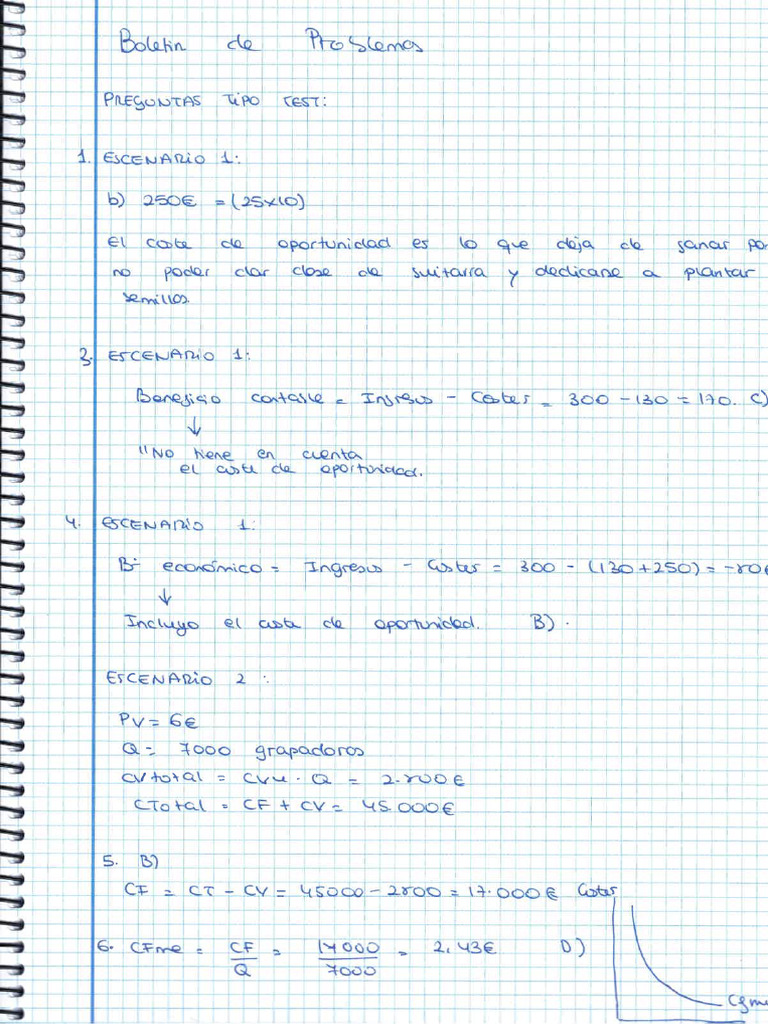 Boletin de Problemas
PREGUNTAS TIPO TEST:
1. ESCENARIO 1:
b) 250€ = (25x10)
El coste de oportunidad es lo que deja de ganar por
no poder dar clase de guitarra y dedicarse a plantar
semillas.
3. ESCENARIO 1:
Beneficio contable = Ingresos - Costes = 300 - 130 = 170. C)
↓
"No tiene en cuenta
el coste de oportunidad.
4. ESCENARIO 1:
Bº económico = Ingresos - Costes = 300 - (130 + 250) = -80€
↓
Incluyo el coste de oportunidad. B).
ESCENARIO 2 :
PV = 6€
Q = 7000 grapadoras
CVtotal = CVu · Q = 2.800€
CTotal = CF + CV = 45.000€
5. B)
CF = CT - CV = 45000 - 2800 = 17.000€
Costes
6. CFme = CF / Q = 17000 / 7000 = 2,43€ D)
CFme